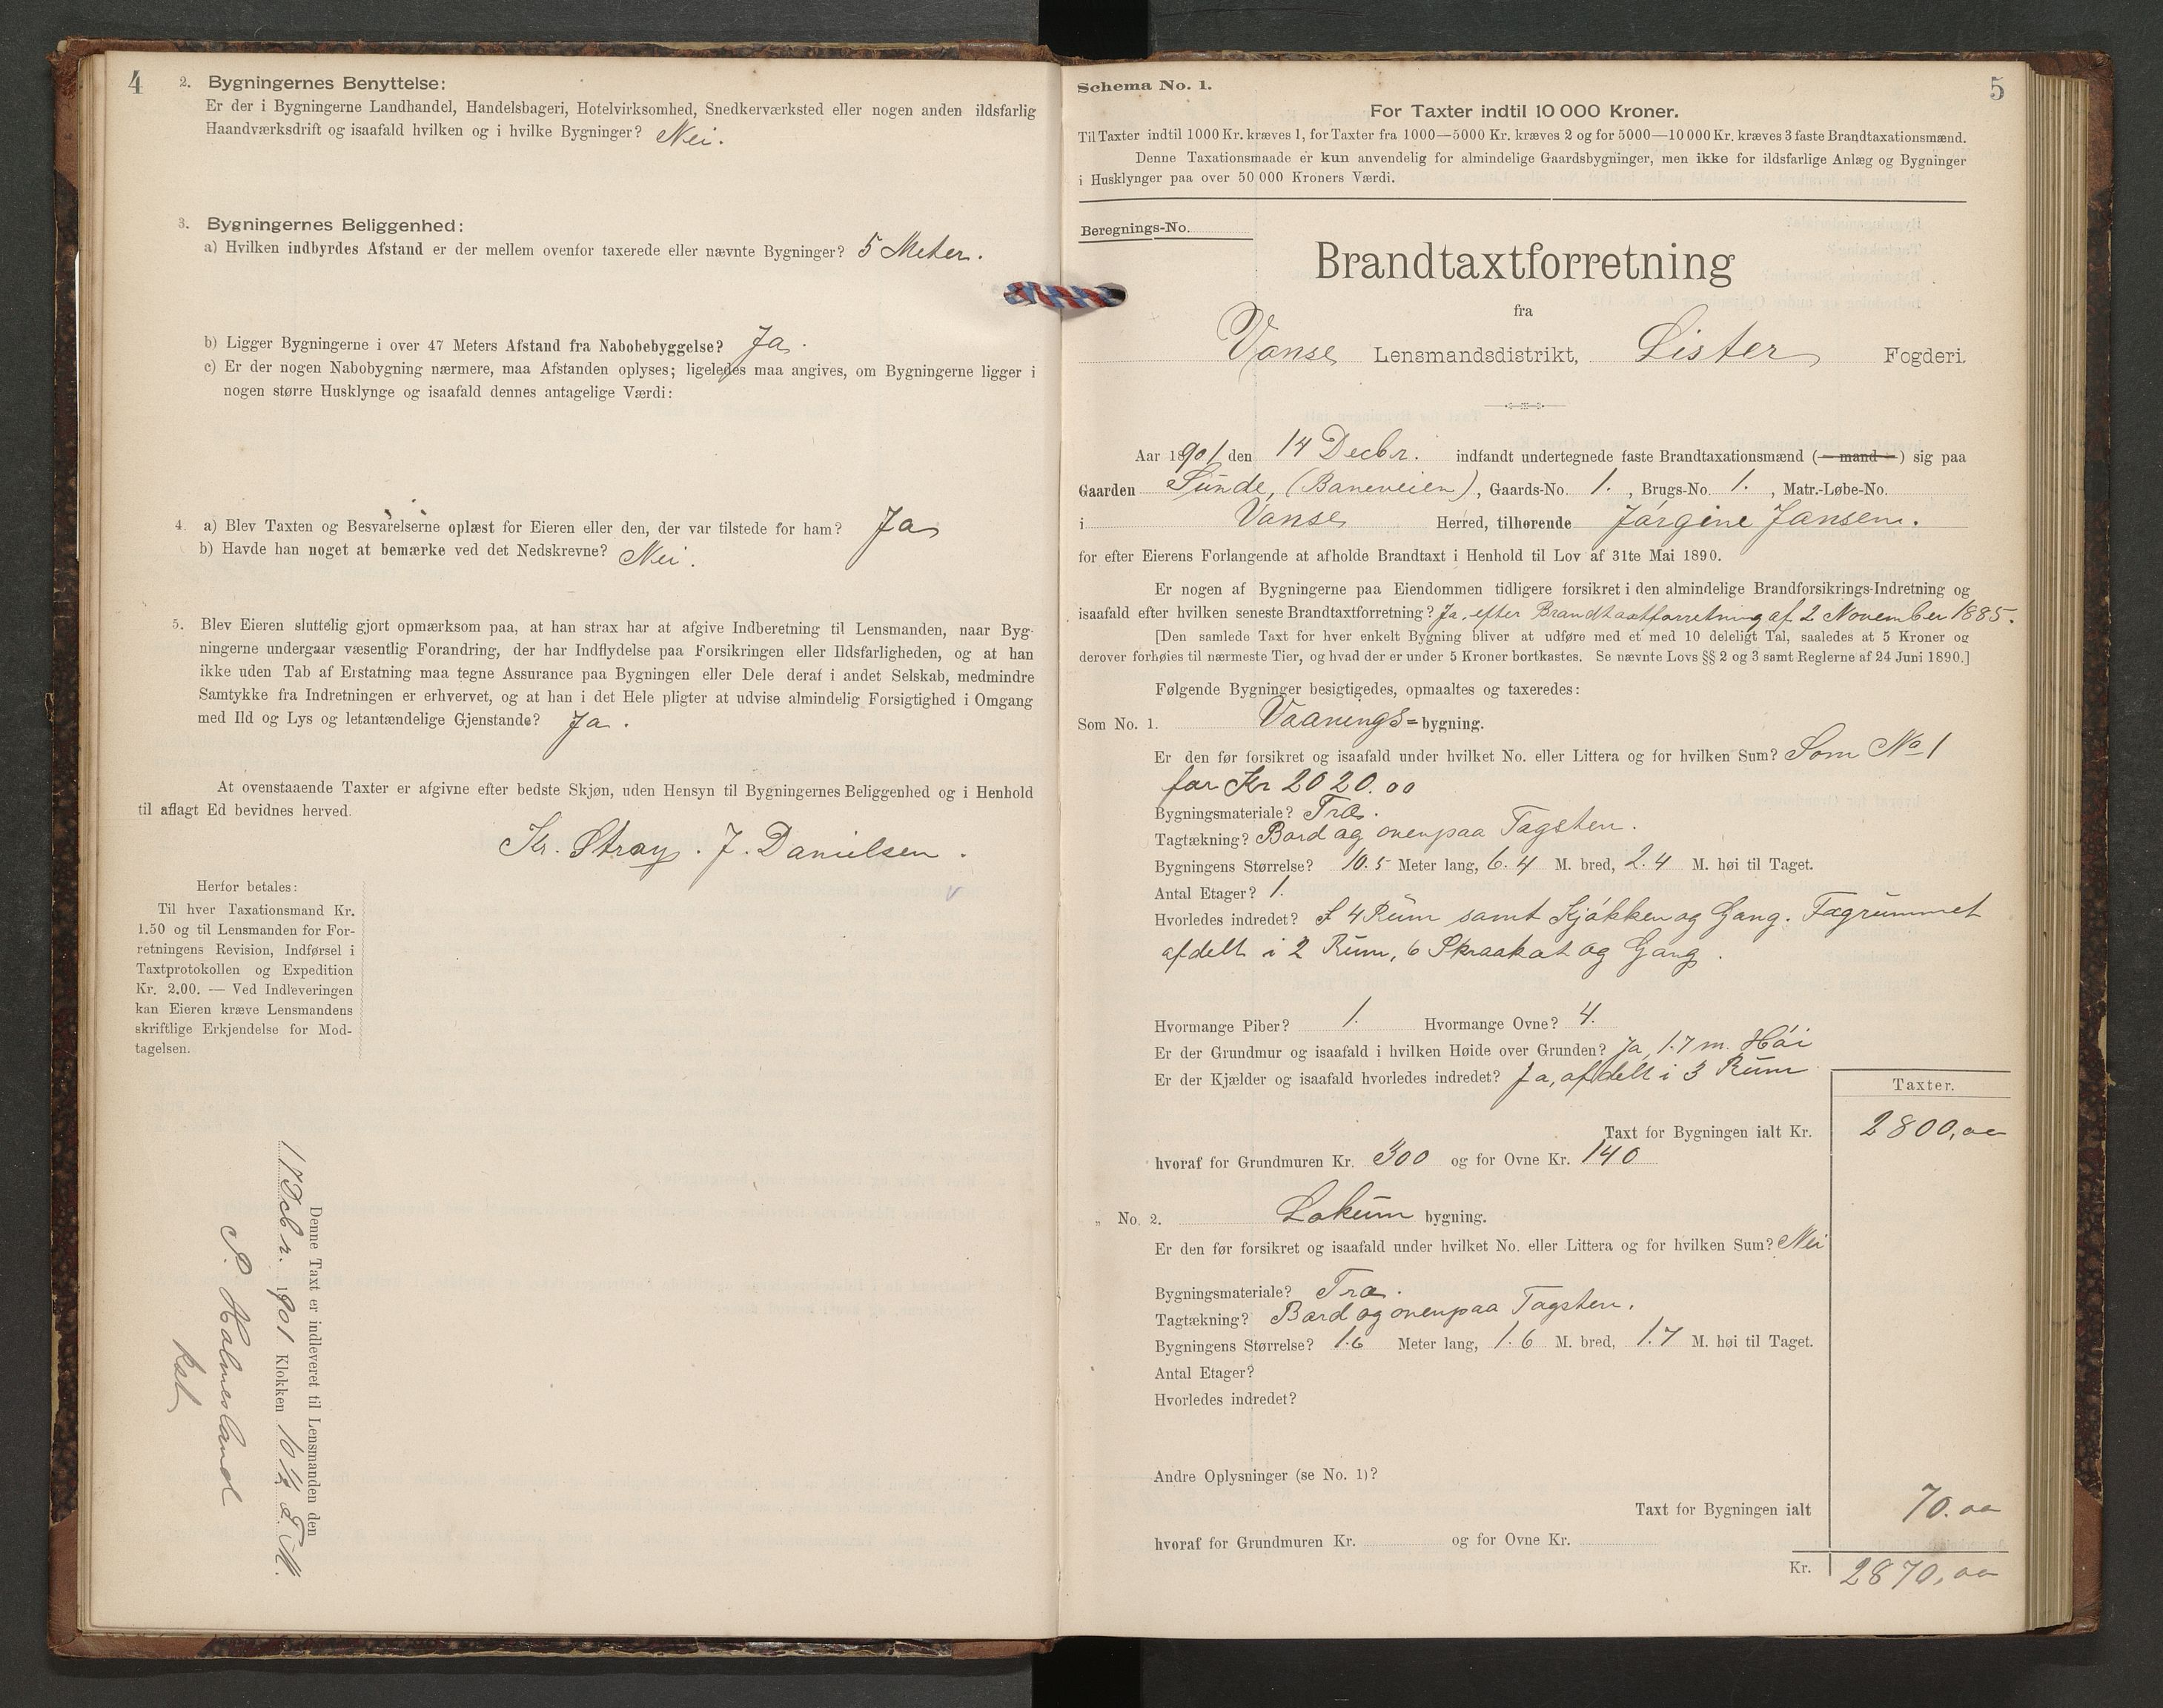 4
2. Bygningernes Benyttelse:
Er der i Bygningerne Landhandel, Handelsbageri, Hotelvirksomhed, Snedkerværksted eller nogen anden ildsfarlig
Haandværksdrift og isaafald hvilken og i hvilke Bygninger? Nei.
3. Bygningernes Beliggenhed:
a) Hvilken indbyrdes Afstand er der mellem ovenfor taxerede eller nævnte Bygninger? 5 Meter.
b) Ligger Bygningerne i over 47 Meters Afstand fra Nabobebyggelse? Ja.
c) Er der nogen Nabobygning nærmere, maa Afstanden oplyses; ligeledes maa angives, om Bygningerne ligger i
nogen større Husklynge og isaafald dennes antagelige Værdi:
4. a) Blev Taxten og Besvarelserne oplæst for Eieren eller den, der var tilstede for ham? Ja
b) Havde han noget at bemærke ved det Nedskrevne? Nei.
5. Blev Eieren sluttelig gjort opmærksom paa, at han strax har at afgive Indberetning til Lensmanden, naar Byg-
ningerne undergaar væsentlig Forandring, der har Indflydelse paa Forsikringen eller Ildsfarligheden, og at han
ikke uden Tab af Erstatning maa tegne Assurance paa Bygningen eller Dele deraf i andet Selskab, medmindre
Samtykke fra Indretningen er erhvervet, og at han i det Hele pligter at udvise almindelig Forsigtighed i Omgang
med Ild og Lys og letantændelige Gjenstande? Ja.
At ovenstaaende Taxter er afgivne efter bedste Skjøn, uden Hensyn til Bygningernes Beliggenhed og i Henhold
til aflagt Ed bevidnes herved.
Kr. Stray. J. Danielsen.
Herfor betales:
Til hver Taxationsmand Kr.
1.50 og til Lensmanden for For-
retningens Revision, Indførsel i
Taxtprotokollen og Expedition
Kr. 2.00. — Ved Indleveringen
kan Eieren kræve Lensmandens
skriftlige Erkjendelse for Mod-
tagelsen.
Denne Taxt er indleveret til Lensmanden den
17 Decbr. 1901 Klokken 10 1/2 F.M.
S. Halmesland
kst
5
Schema No. 1.
For Taxter indtil 10 000 Kroner.
Til Taxter indtil 1000 Kr. kræves 1, for Taxter fra 1000—5000 Kr. kræves 2 og for 5000—10 000 Kr. kræves 3 faste Brandtaxationsmænd.
Denne Taxationsmaade er kun anvendelig for almindelige Gaardsbygninger, men ikke for ildsfarlige Anlæg og Bygninger
i Husklynger paa over 50 000 Kroners Værdi.
Beregnings-No.
Brandtaxtforretning
fra
Vanse Lensmandsdistrikt, Lister Fogderi.
Aar 1901 den 14 Decbr. indfandt undertegnede faste Brandtaxationsmænd (— mand —) sig paa
Gaarden Sunde, (Baneveien), Gaards-No. 1., Brugs-No. 1., Matr.-Løbe-No.
i Vanse Herred, tilhørende Jørgine Jansen.
for efter Eierens Forlangende at afholde Brandtaxt i Henhold til Lov af 31te Mai 1890.
Er nogen af Bygningerne paa Eiendommen tidligere forsikret i den almindelige Brandforsikrings-Indretning og
isaafald efter hvilken seneste Brandtaxtforretning? Ja, efter Brandtaxtforretning af 2 November 1885.
[Den samlede Taxt for hver enkelt Bygning bliver at udføre med et med 10 deleligt Tal, saaledes at 5 Kroner og
derover forhøies til nærmeste Tier, og hvad der er under 5 Kroner bortkastes. Se nævnte Lovs §§ 2 og 3 samt Reglerne af 24 Juni 1890.]
Følgende Bygninger besigtigedes, opmaaltes og taxeredes:
Som No. 1. Vaanings=bygning.
Er den før forsikret og isaafald under hvilket No. eller Littera og for hvilken Sum? Som No 1
for Kr 2020.00
Bygningsmateriale? Træ.
Tagtækning? Bord og ovenpaa Tagsten.
Bygningens Størrelse? 10.5 Meter lang, 6.4 M. bred, 2.4 M. høi til Taget.
Antal Etager? 1.
Hvorledes indredet? I 4 Rum samt Kjøkken og Gang. Tagrummet
afdelt i 2 Rum, 6 Skraakot og Gang.
Hvormange Piber? 1. Hvormange Ovne? 4.
Er der Grundmur og isaafald i hvilken Høide over Grunden? Ja, 1.7 m. Høi
Er der Kjælder og isaafald hvorledes indredet? Ja, afdelt i 3 Rum
Taxter.
Taxt for Bygningen ialt Kr. 2800,00
hvoraf for Grundmuren Kr. 300 og for Ovne Kr. 140
„ No. 2. Lokum bygning.
Er den før forsikret og isaafald under hvilket No. eller Littera og for hvilken Sum? Nei
Bygningsmateriale? Træ.
Tagtækning? Bord og ovenpaa Tagsten.
Bygningens Størrelse? 1.6 Meter lang, 1.6 M. bred, 1.7 M. høi til Taget.
Antal Etager?
Hvorledes indredet?
Andre Oplysninger (se No. 1)?
Taxt for Bygningen ialt 70.00
hvoraf for Grundmuren Kr. og for Ovne Kr.
Kr. 2870,00